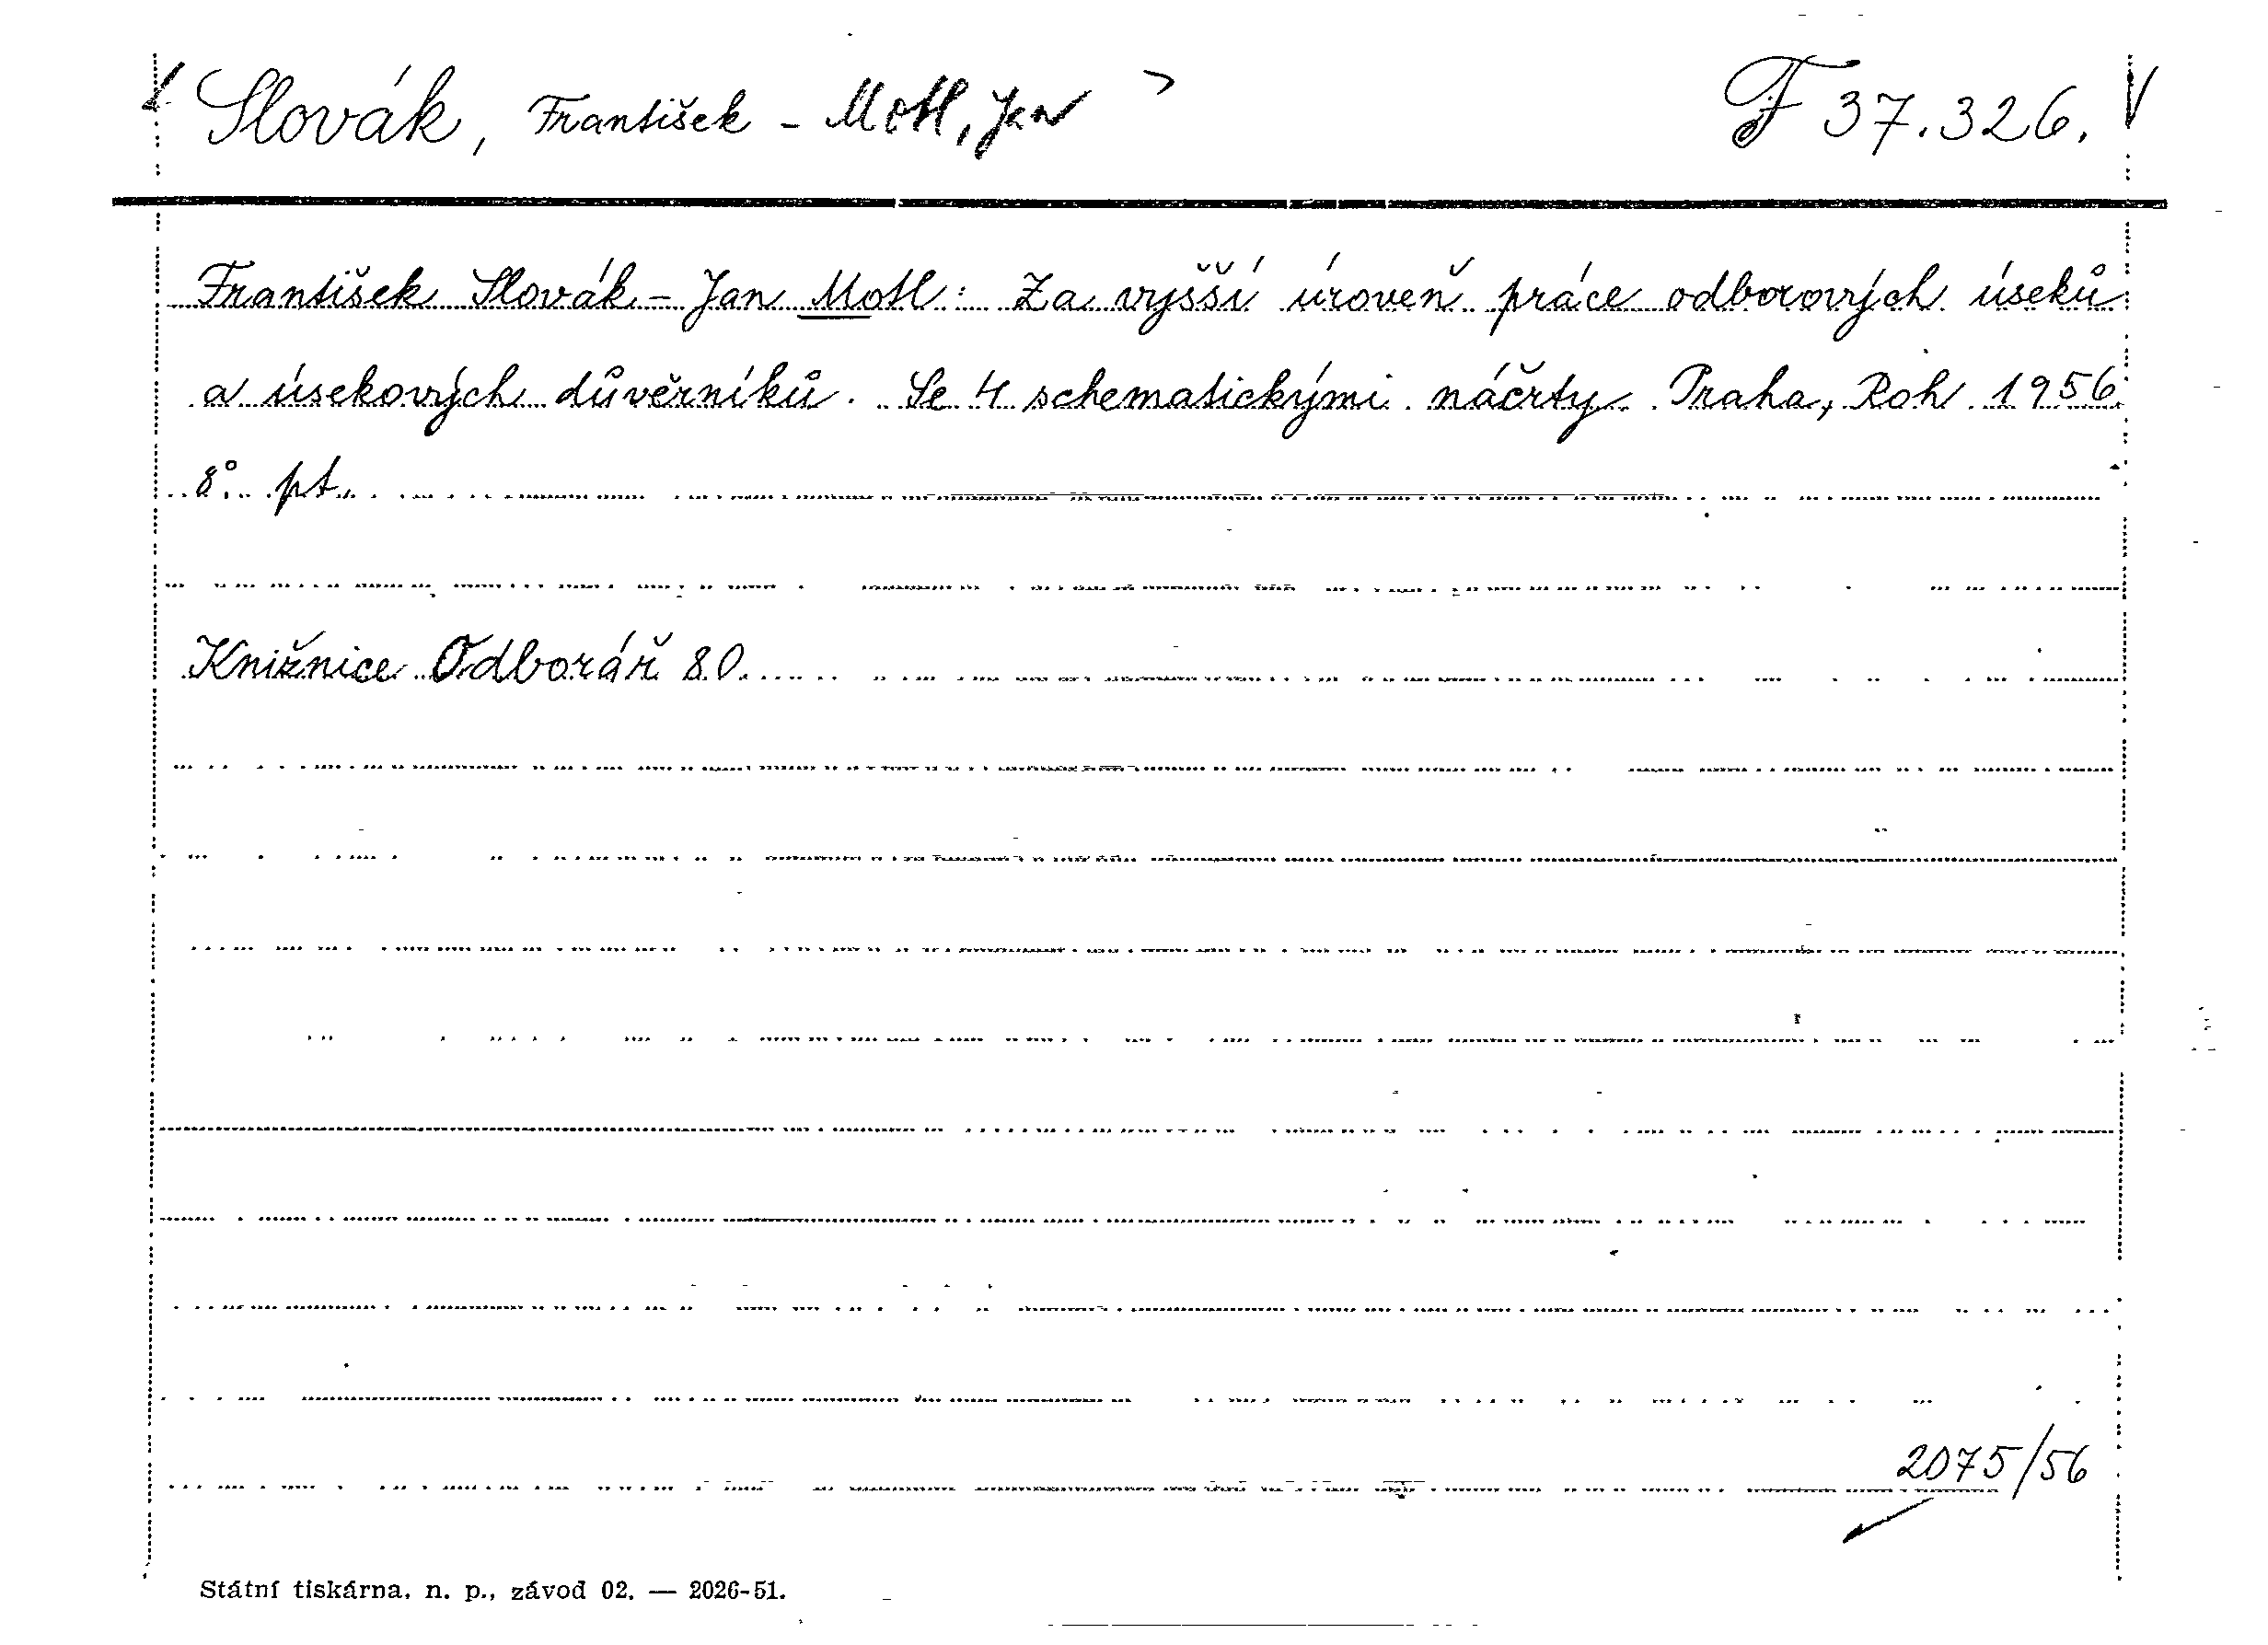 Slovák, František - Motl, Jan F 37.326.
František Slovák - Jan Motl: Za vyšší úroveň práce odborových úseků
a úsekových důvěrníků. Se 4 schematickými náčrty. Praha, Roh 1956.
8°. pt.
Knižnice Odborář 80.
2075/56
Státní tiskárna, n. p., závod 02. — 2026-51.